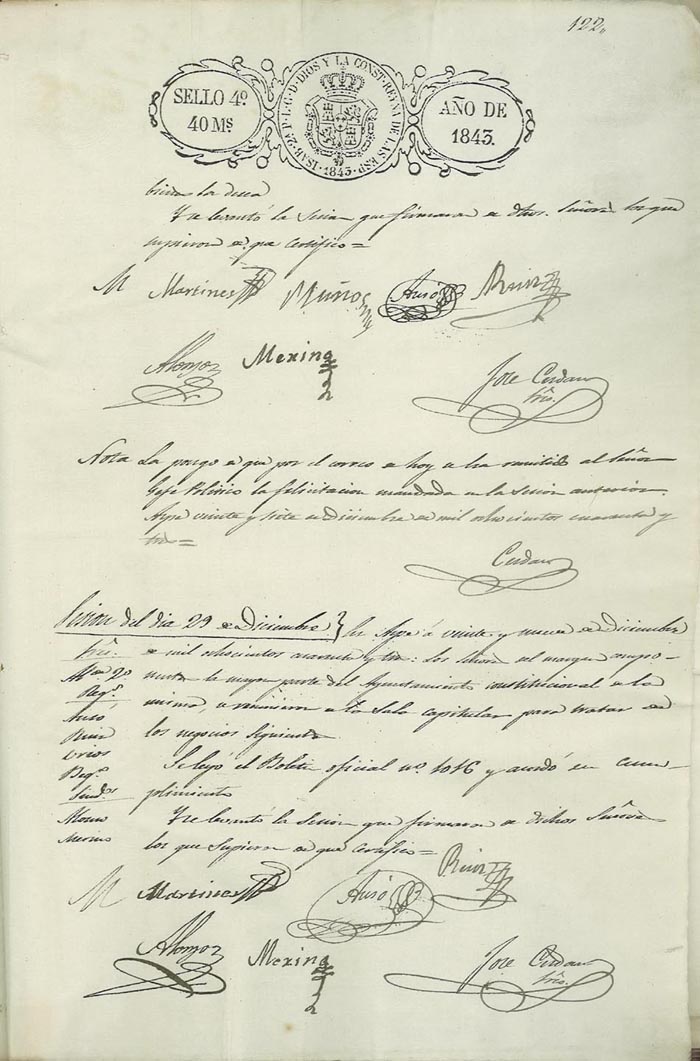 122,
SELLO 4º
40 Ms
ISAB·2ª P·L·G·D·DIOS Y LA CONST·REYNA DE LAS ESP·
1843
AÑO DE
1843.
Y se levantó la Sesion que firmaran de dhos. Señores los que
supieron de que certifico=
M Martines Muños Ausó Ruiz
Alonzo Mexina Jose Cerdan
Srio.
Nota La pongo de que por el correo de hoy se ha remitido al Señor
Gefe Politico la felicitacion mandada en la Sesion anterior.
Aspe veinte y siete de Diciembre de mil ochocientos cuarenta y
tres=
Cerdan
Sesion del dia 29 de Diciembre} En Aspe á veinte y nueve de Diciembre
de mil ochocientos cuarenta y tres: los Señores del margen compo-
nentes la mayor parte del Ayuntamiento constitucional de la
misma, se reunieron en la Sala capitular para tratar de
los negocios siguientes
Se leyó el Boletin oficial nº. 1016 y acordó su cum-
plimiento
Y se levantó la Sesion que firmaran de dichos Señores
los que supieron de que certifico=
Sres.
Ale. 2º
Reg.s
Ausó
Ruiz
Reg.s
Sind.s
Merino
M Martines Ausó Ruiz
Alonzo Mexina Jose Cerdan
Srio.